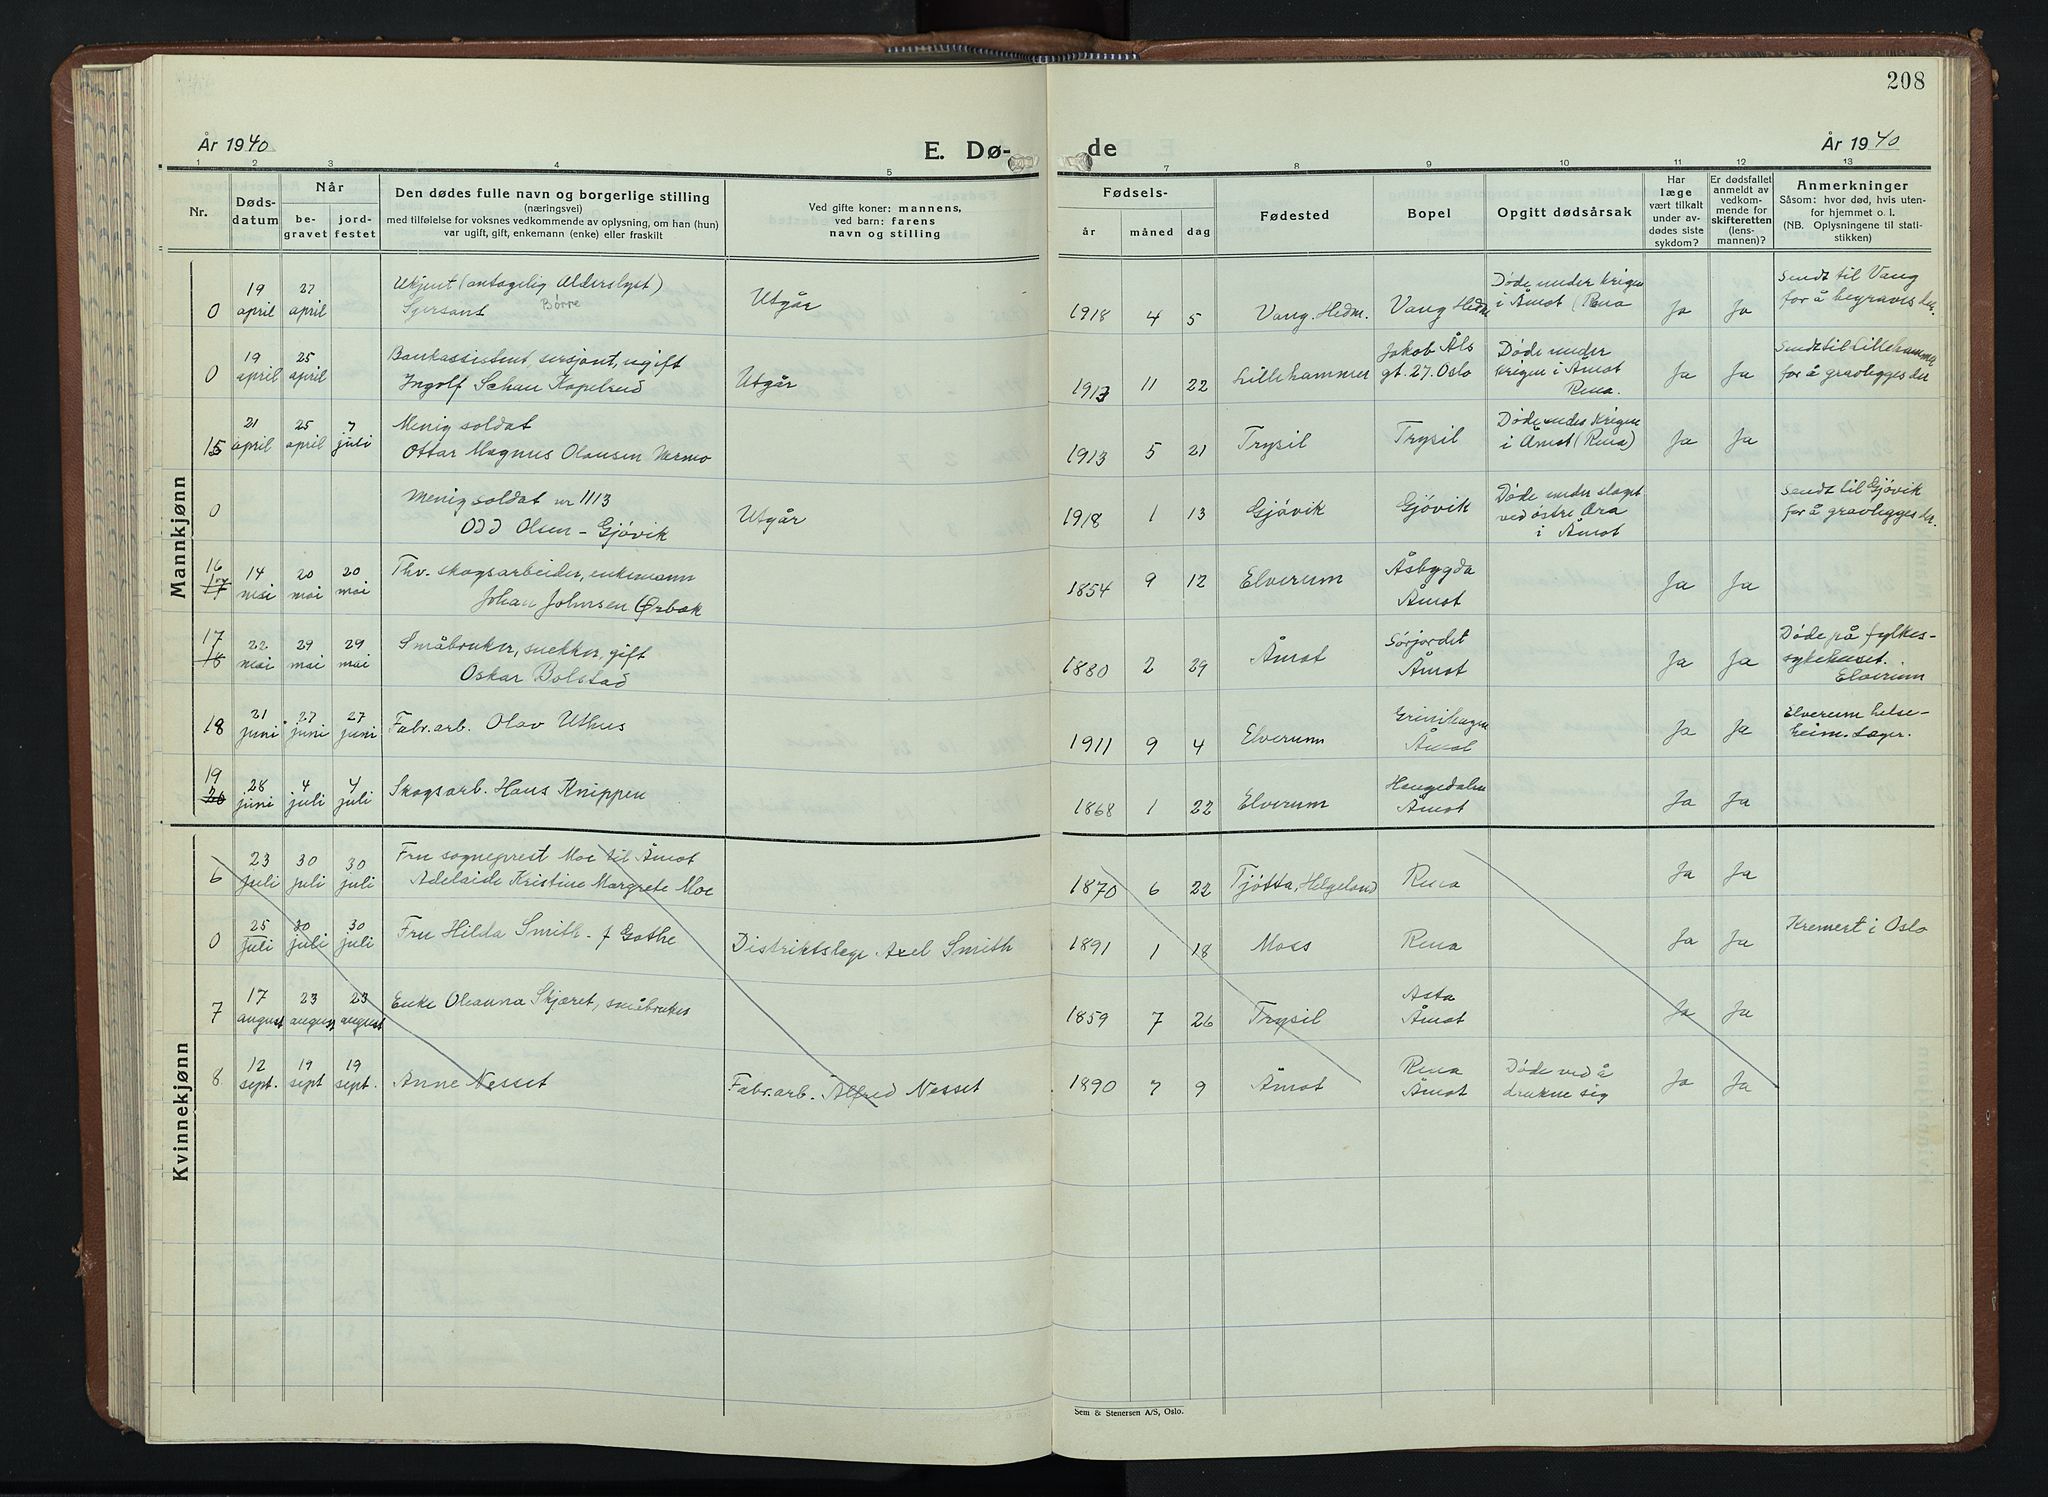 208
År 1940
E. Dø-
de
År 1940
1 2 3 4 5 7 8 9 10 11 12 13
Nr.
Døds-
datum
Når
be-
gravet
jord-
festet
Den dødes fulle navn og borgerlige stilling
(næringsvei)
med tilføielse for voksnes vedkommende av oplysning, om han (hun)
var ugift, gift, enkemann (enke) eller fraskilt
Ved gifte koner: mannens,
ved barn: farens
navn og stilling
Fødsels-
år måned dag
Fødested
Bopel
Opgitt dødsårsak
Har
læge
vært tilkalt
under av-
dødes siste
sykdom?
Er dødsfallet
anmeldt av
vedkom-
mende for
skifteretten
(lens-
mannen)?
Anmerkninger
Såsom: hvor død, hvis uten-
for hjemmet o. l.
(NB. Oplysningene til stati-
stikken)
Mannkjønn
0 19 april 27 april
Ukjent (antagelig Alderslyst)
Sersjant Børre
Utgår
1918 4 5 Vang. Hedm. Vang Hedm
Døde under krigen
i Åmot (Rena
Ja Ja
Sendt til Vang
for å begraves der.
0 19 april 25 april
Bankassistent, sersjant, ugift
Ingolf Schau Kapelrud
Utgår
1913 11 22 Lillehammer
Jakob Åls
gt. 27. Oslo
Døde under
krigen i Åmot
Rena.
Ja Ja
Sendt til Lillehammer
for å gravlegges der
15 21 april 25 april 7 juli
Menig soldat
Ottar Magnus Olausen Varmo
1913 5 21 Trysil Trysil
Døde under krigen
i Åmot (Rena)
Ja Ja
0
Menig soldat nr 1113
Odd Olsen - Gjøvik
Utgår
1918 1 13 Gjøvik Gjøvik
Døde under slaget
ved østre Æra
i Åmot
Sendt til Gjøvik
for å gravlegges der.
16 17 14 mai 20 mai 20 mai
Thv. skogsarbeider, enkemann
Johan Johnsen Ørbæk
1854 9 12 Elverum
Åsbygda
Åmot
Ja Ja
17 18 22 mai 29 mai 29 mai
Småbruker, snekker, gift
Oskar Bolstad
1880 2 29 Åmot
Sørjordet
Åmot
Ja Ja
Døde på fylkes-
sykehuset.
Elverum
18 21 juni 27 juni 27 juni
Fabr.arb. Olav Uthus
1911 9 4 Elverum
Grinihagen
Åmot
Ja Ja
Elverum helse-
heim.
19 20 28 juni 4 juli 4 juli
Skogsarb. Hans Knippen
1868 1 22 Elverum
Haugedalen
Åmot
Ja Ja
Kvinnekjønn
6 23 juli 30 juli 30 juli
Fru sogneprest Moe til Åmot
Adelaide Kristine Margrete Moe
1870 6 22 Tjøtta, Helgeland Rena
Ja Ja
0 25 Juli 30 juli 30 juli
Fru Hilda Smith - f Gothe
Distriktslege Axel Smith
1891 1 18 Moss Rena
Ja Ja
Kremert i Oslo
7 17 august 23 august 23 august
Enke Oleanna Skjæret, småbruker
1859 7 26 Trysil
Åsta
Åmot
Ja Ja
8 12 sept. 19 sept 19 sept.
Anne Nesset
Fabr.arb. Alfred Nesset
1890 7 9 Åmot
Rena
Åmot
Døde ved å
drukne sig
Ja Ja
Sem & Stenersen A/S, Oslo.